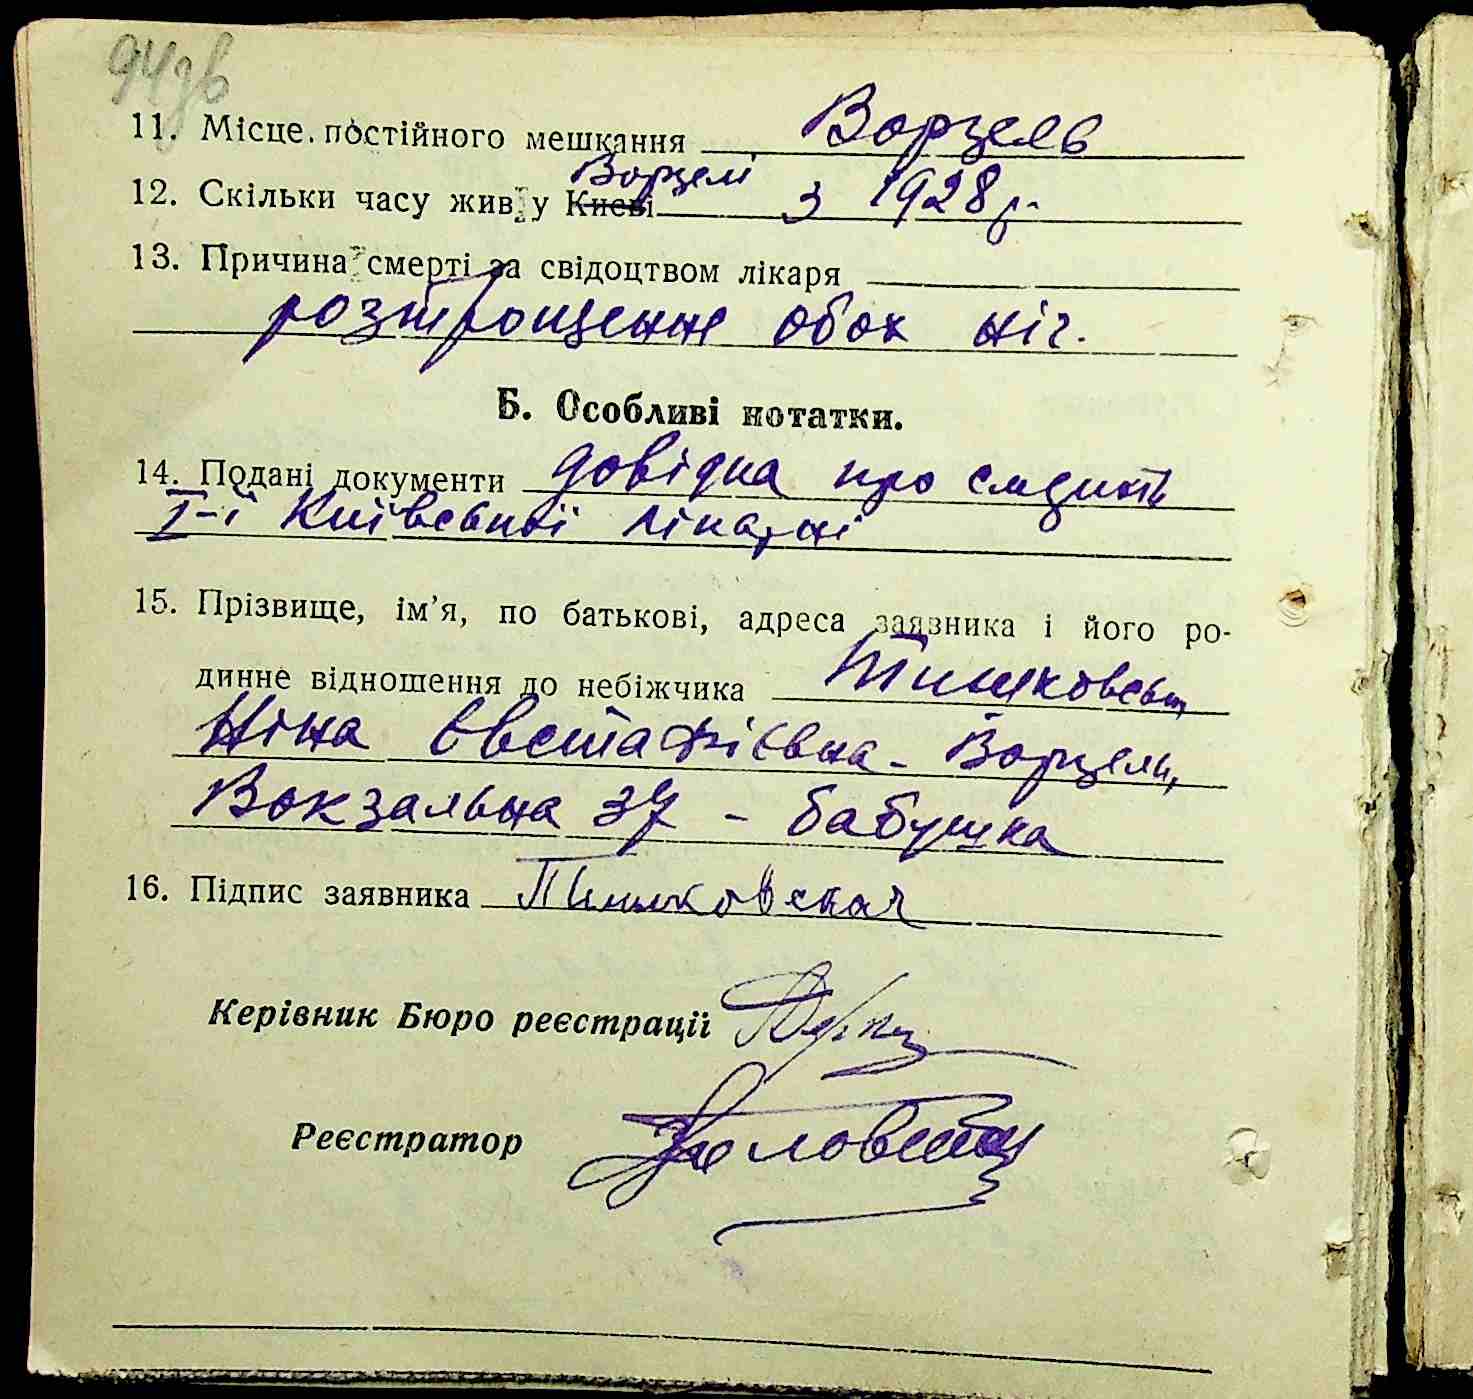 94зв
11. Місце постійного мешкання Ворзель
Ворзелі
12. Скільки часу жив у Києві з 1928 р.
13. Причина смерті за свідоцтвом лікаря
розтрощення обох ніг.
Б. Особливі нотатки.
14. Подані документи довідка про смерть
I-ї Київської лікарні
15. Прізвище, ім'я, по батькові, адреса заявника і його ро-
динне відношення до небіжчика
Ніна Євстафієвна - Ворзель,
Вокзальна 37 - бабушка
16. Підпис заявника
Керівник Бюро реєстрації
Реєстратор